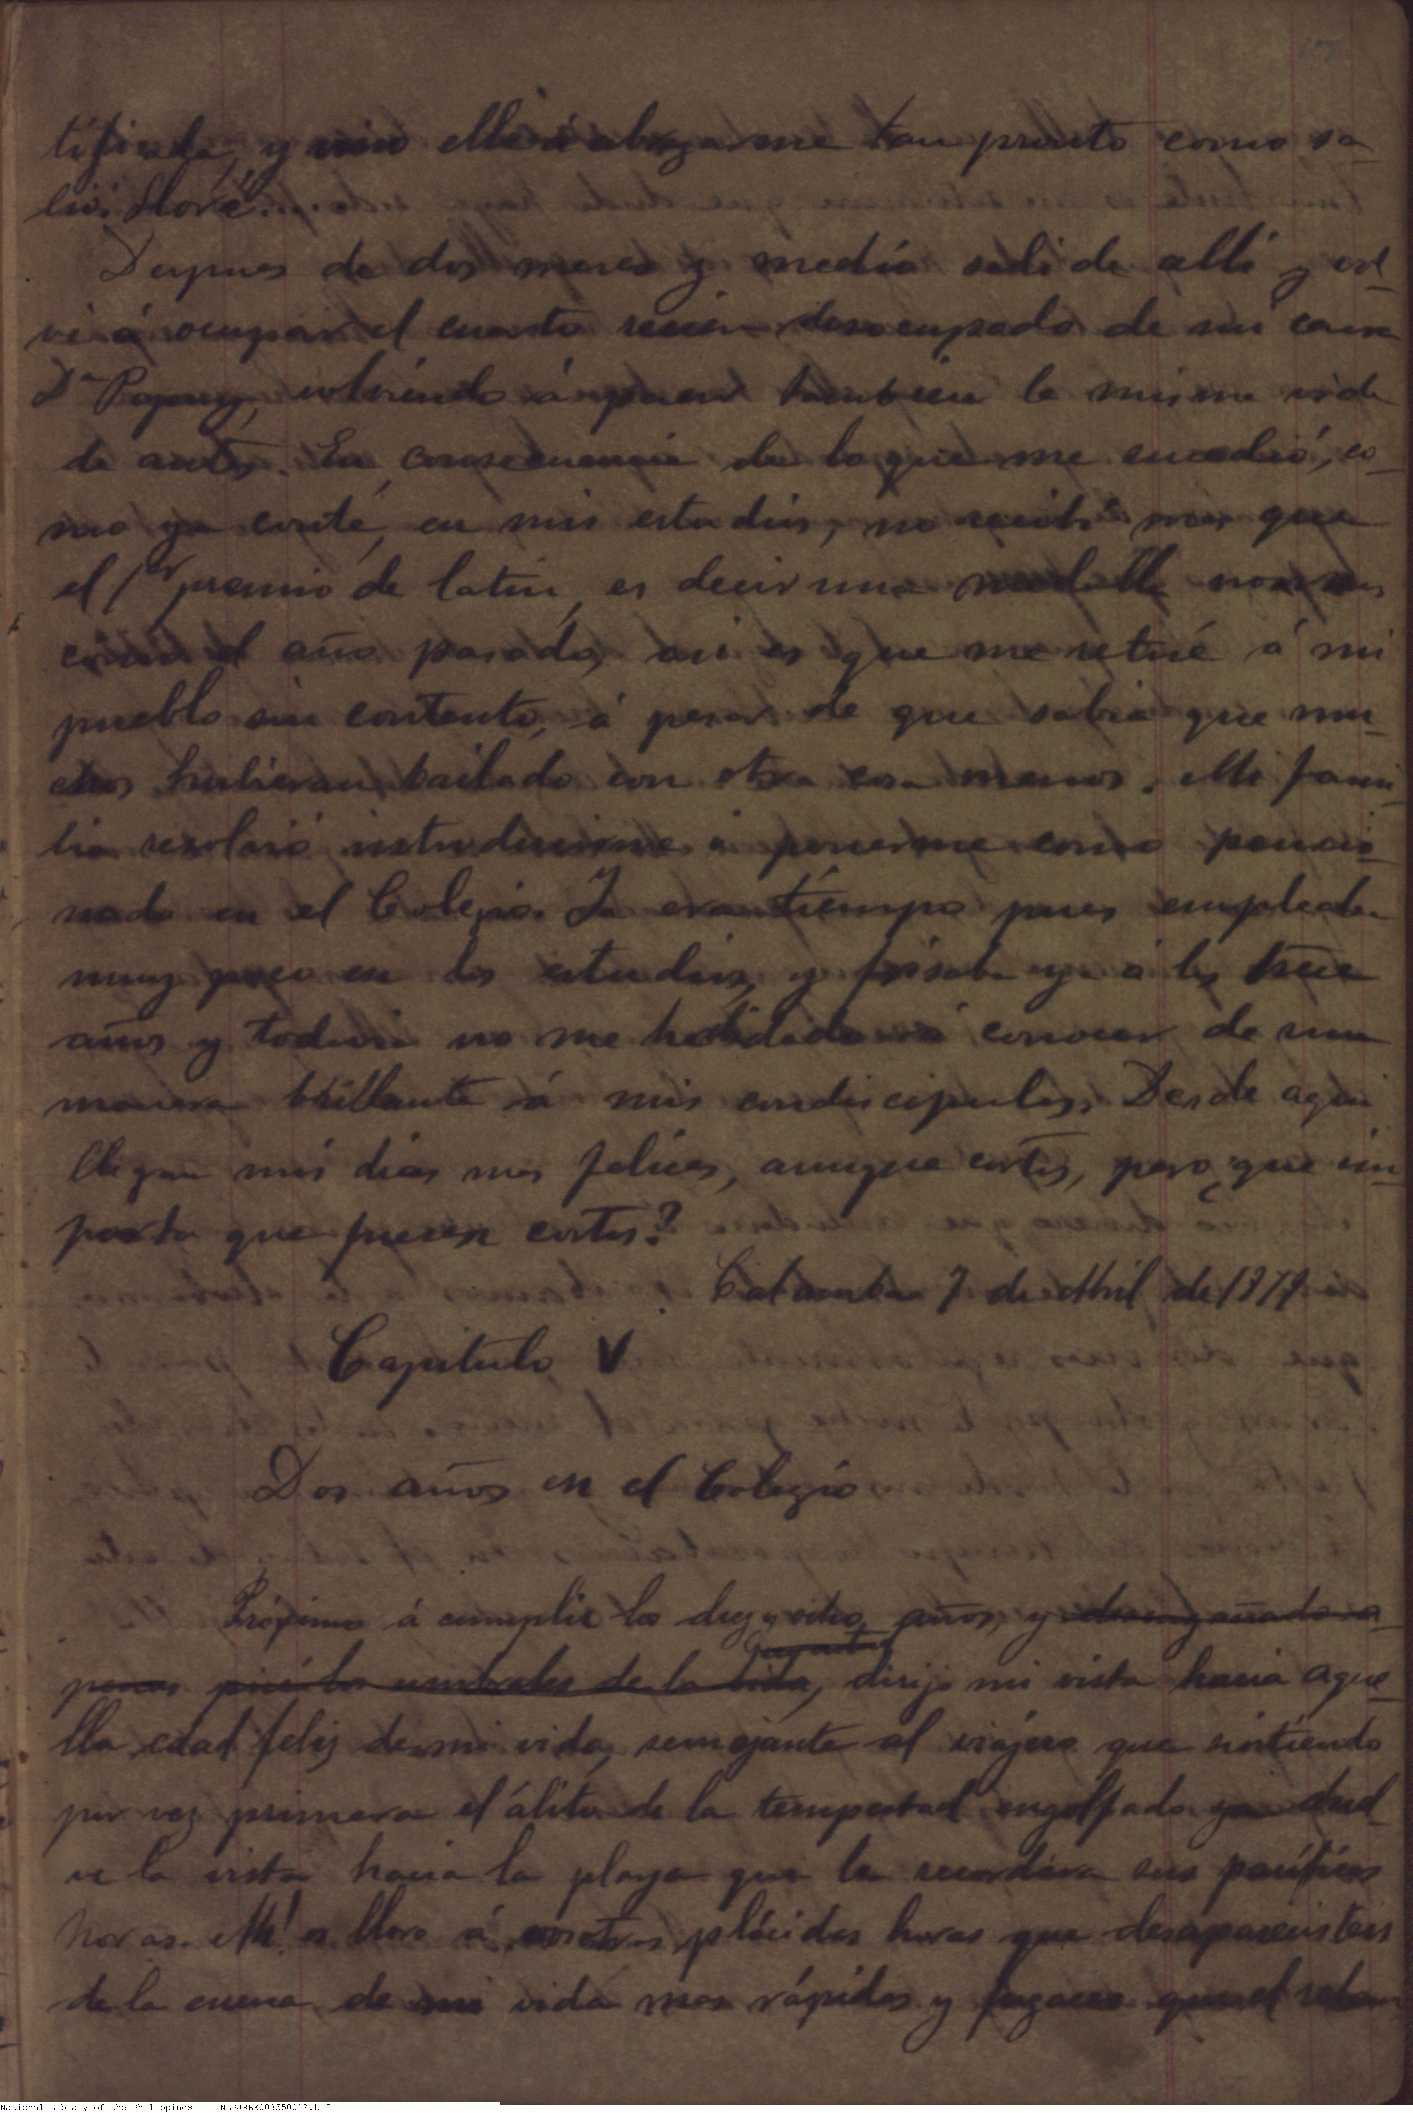 tificada, y vino ella á abrazarme tan pronto como sa-
lió. Lloré....
Despues de dos meses y medio salí de allí y vol-
ví á ocupar el cuarto recien desocupado de mi casera
Dª Pepay, volviendo á pasar tambien la misma vida
de antes. En consecuencia de lo que me sucedió, co-
mo ya conté, en mis estudios, no recibí mas que
el 1er premio de latin, es decir una medalla no mas
como el año pasado, asi es que me retiré á mi
pueblo sin contento, á pesar de que sabia que mu-
chos hubieran bailado con otra cosa menos. Mi fami-
lia resolvió ponerme como pensio-
nado en el Colegio. Ya era tiempo pues empleaba
muy poco en los estudios, y frisaba ya á los trece
años y todavia no me habia dado á conocer de una
manera brillante á mis condiscipulos. Desde aqui
llegan mis dias mas felices, aunque cortos, pero ¿que im-
porta que fuesen cortos?
Calamba 7 de Abril de 1879
Capitulo V
Dos años en el Colegio
Próximo á cumplir los diez y ocho años, y desengañado a-
penas pisé los umbrales de la vida, dirijo mi vista hacia aque-
lla edad feliz de mi vida, semejante al viajero que sintiendo
por vez primera el álito de la tempestad engolfado ya vuel-
ve la vista hacia la playa que le recordara sus pacíficas
horas. Ah! os lloro á vosotras plácidas horas que desaparecisteis
de la escena de mi vida mas rápidas y fugaces que el relam-
National Library of the Philippines